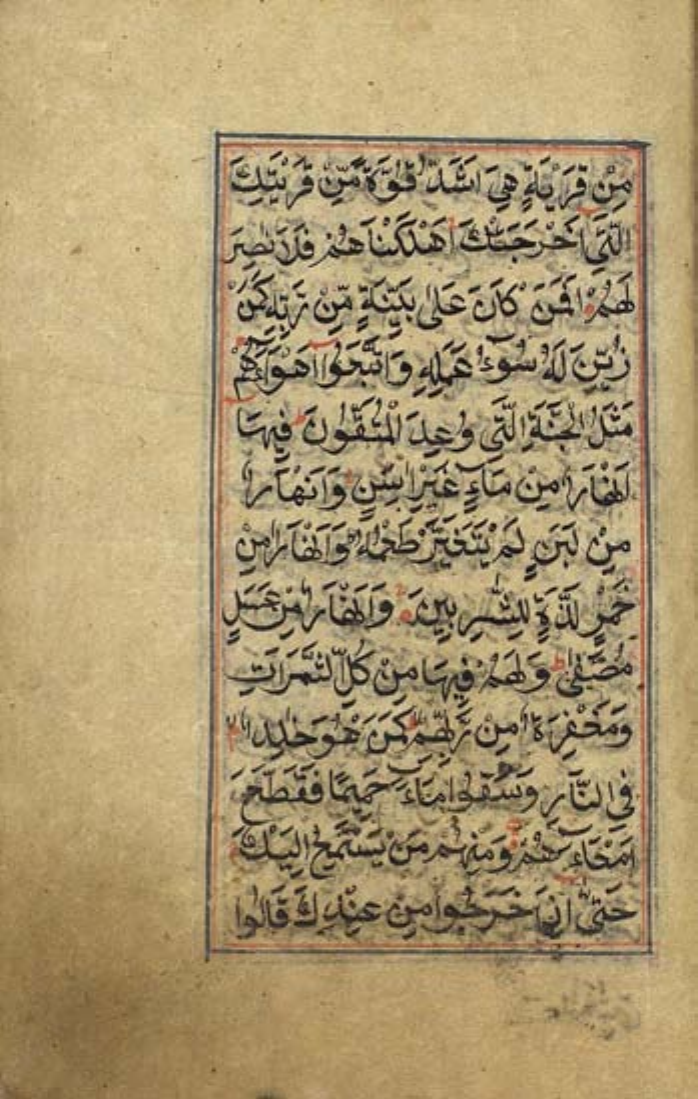 مِنْ قَرْيَةٍ هِيَ اَشَدُّ قُوَّةً مِّنْ قَرْيَتِكَ
الَّتِيْ اَخْرَجَتْكَ اَهْلَكْنَاهُمْ فَلَا نَاصِرَ
لَهُمْ اَفَمَنْ كَانَ عَلٰى بَيِّنَةٍ مِّنْ رَّبِّهٖ كَمَنْ
زُيِّنَ لَهٗ سُوْٓءُ عَمَلِهٖ وَاتَّبَعُوْا اَهْوَآءَهُمْ
مَثَلُ الْجَنَّةِ الَّتِيْ وُعِدَ الْمُتَّقُوْنَ فِيْهَا
اَنْهَارٌ مِنْ مَآءٍ غَيْرِ اٰسِنٍ وَاَنْهَارٌ
مِنْ لَبَنٍ لَمْ يَتَغَيَّرْ طَعْمُهٗ وَاَنْهَارٌ مِنْ
خَمْرٍ لَذَّةٍ لِلشّٰرِبِيْنَ وَاَنْهَارٌ مِنْ عَسَلٍ
مُصَفًّى وَلَهُمْ فِيْهَا مِنْ كُلِّ الثَّمَرَاتِ
وَمَغْفِرَةٌ مِنْ رَبِّهِمْ كَمَنْ هُوَ خَالِدٌ
فِى النَّارِ وَسُقُوْا مَآءً حَمِيْمًا فَقَطَّعَ
اَمْعَآءَهُمْ وَمِنْهُمْ مَنْ يَسْتَمِعُ اِلَيْكَ
حَتّٰى اِذَا خَرَجُوْا مِنْ عِنْدِكَ قَالُوْا